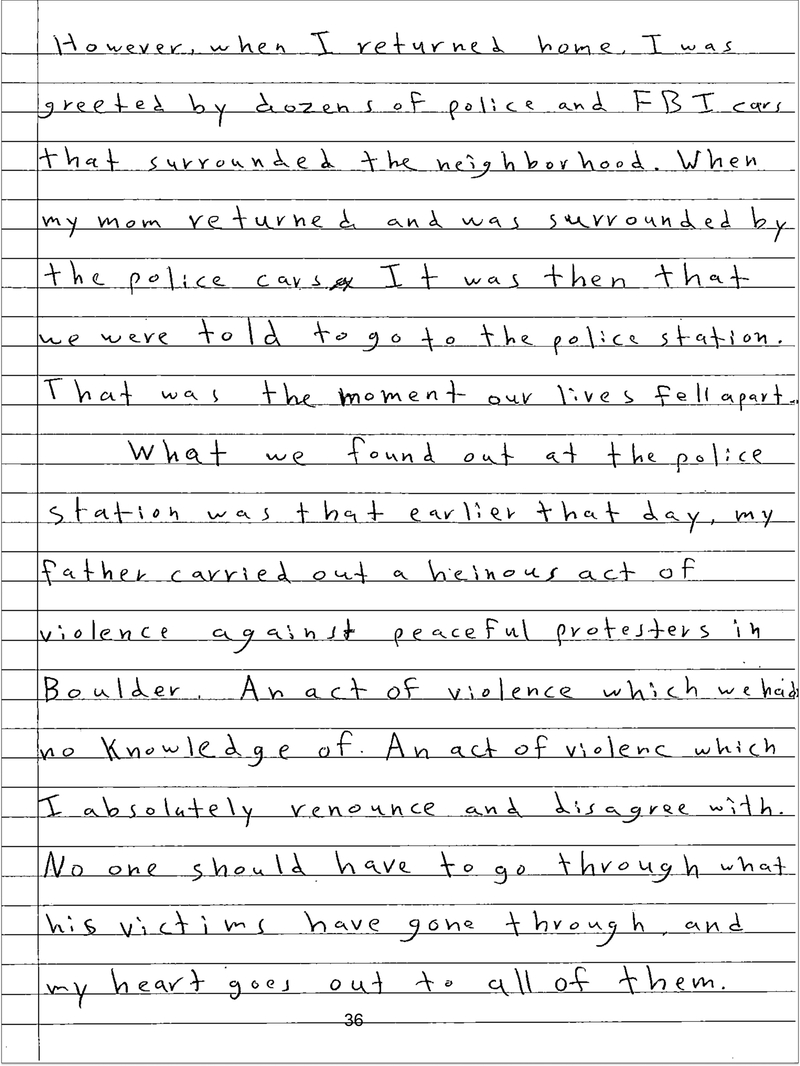 However, when I returned home, I was
greeted by dozens of police and FBI cars
that surrounded the neighborhood. When
my mom returned and was surrounded by
the police cars It was then that
we were told to go to the police station.
That was the moment our lives fell apart.
What we found out at the police
station was that earlier that day, my
father carried out a heinous act of
violence against peaceful protesters in
Boulder. An act of violence which we had
no knowledge of. An act of violenc which
I absolutely renounce and disagree with.
No one should have to go through what
his victims have gone through, and
my heart goes out to all of them.
36